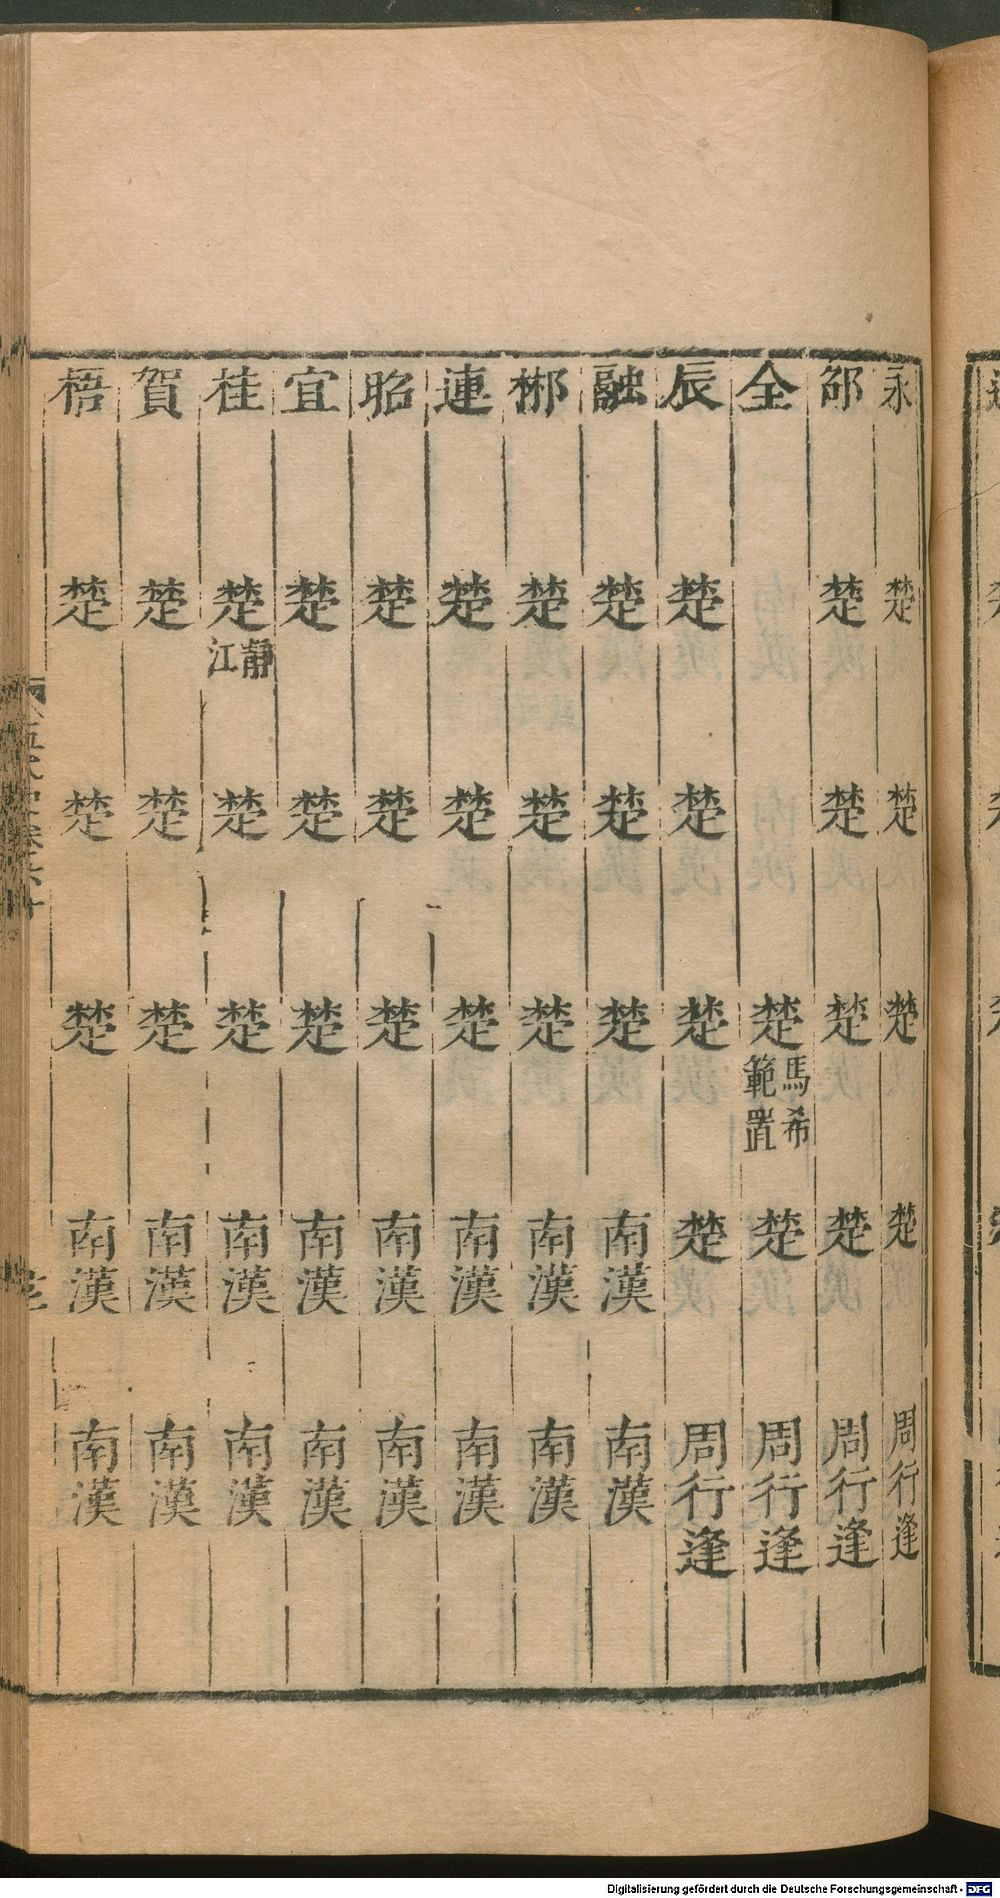 永 楚 楚 楚 楚 周行逢
邵 楚 楚 楚 楚 周行逢
全 楚 馬希範置 楚 周行逢
辰 楚 楚 楚 楚 周行逢
融 楚 楚 楚 南漢 南漢
郴 楚 楚 楚 南漢 南漢
連 楚 楚 楚 南漢 南漢
昭 楚 楚 楚 南漢 南漢
宜 楚 楚 楚 南漢 南漢
桂 楚 靜江 楚 楚 南漢 南漢
賀 楚 楚 楚 南漢 南漢
梧 楚 楚 楚 南漢 南漢
Digitalisierung gefördert durch die Deutsche Forschungsgemeinschaft - DFG